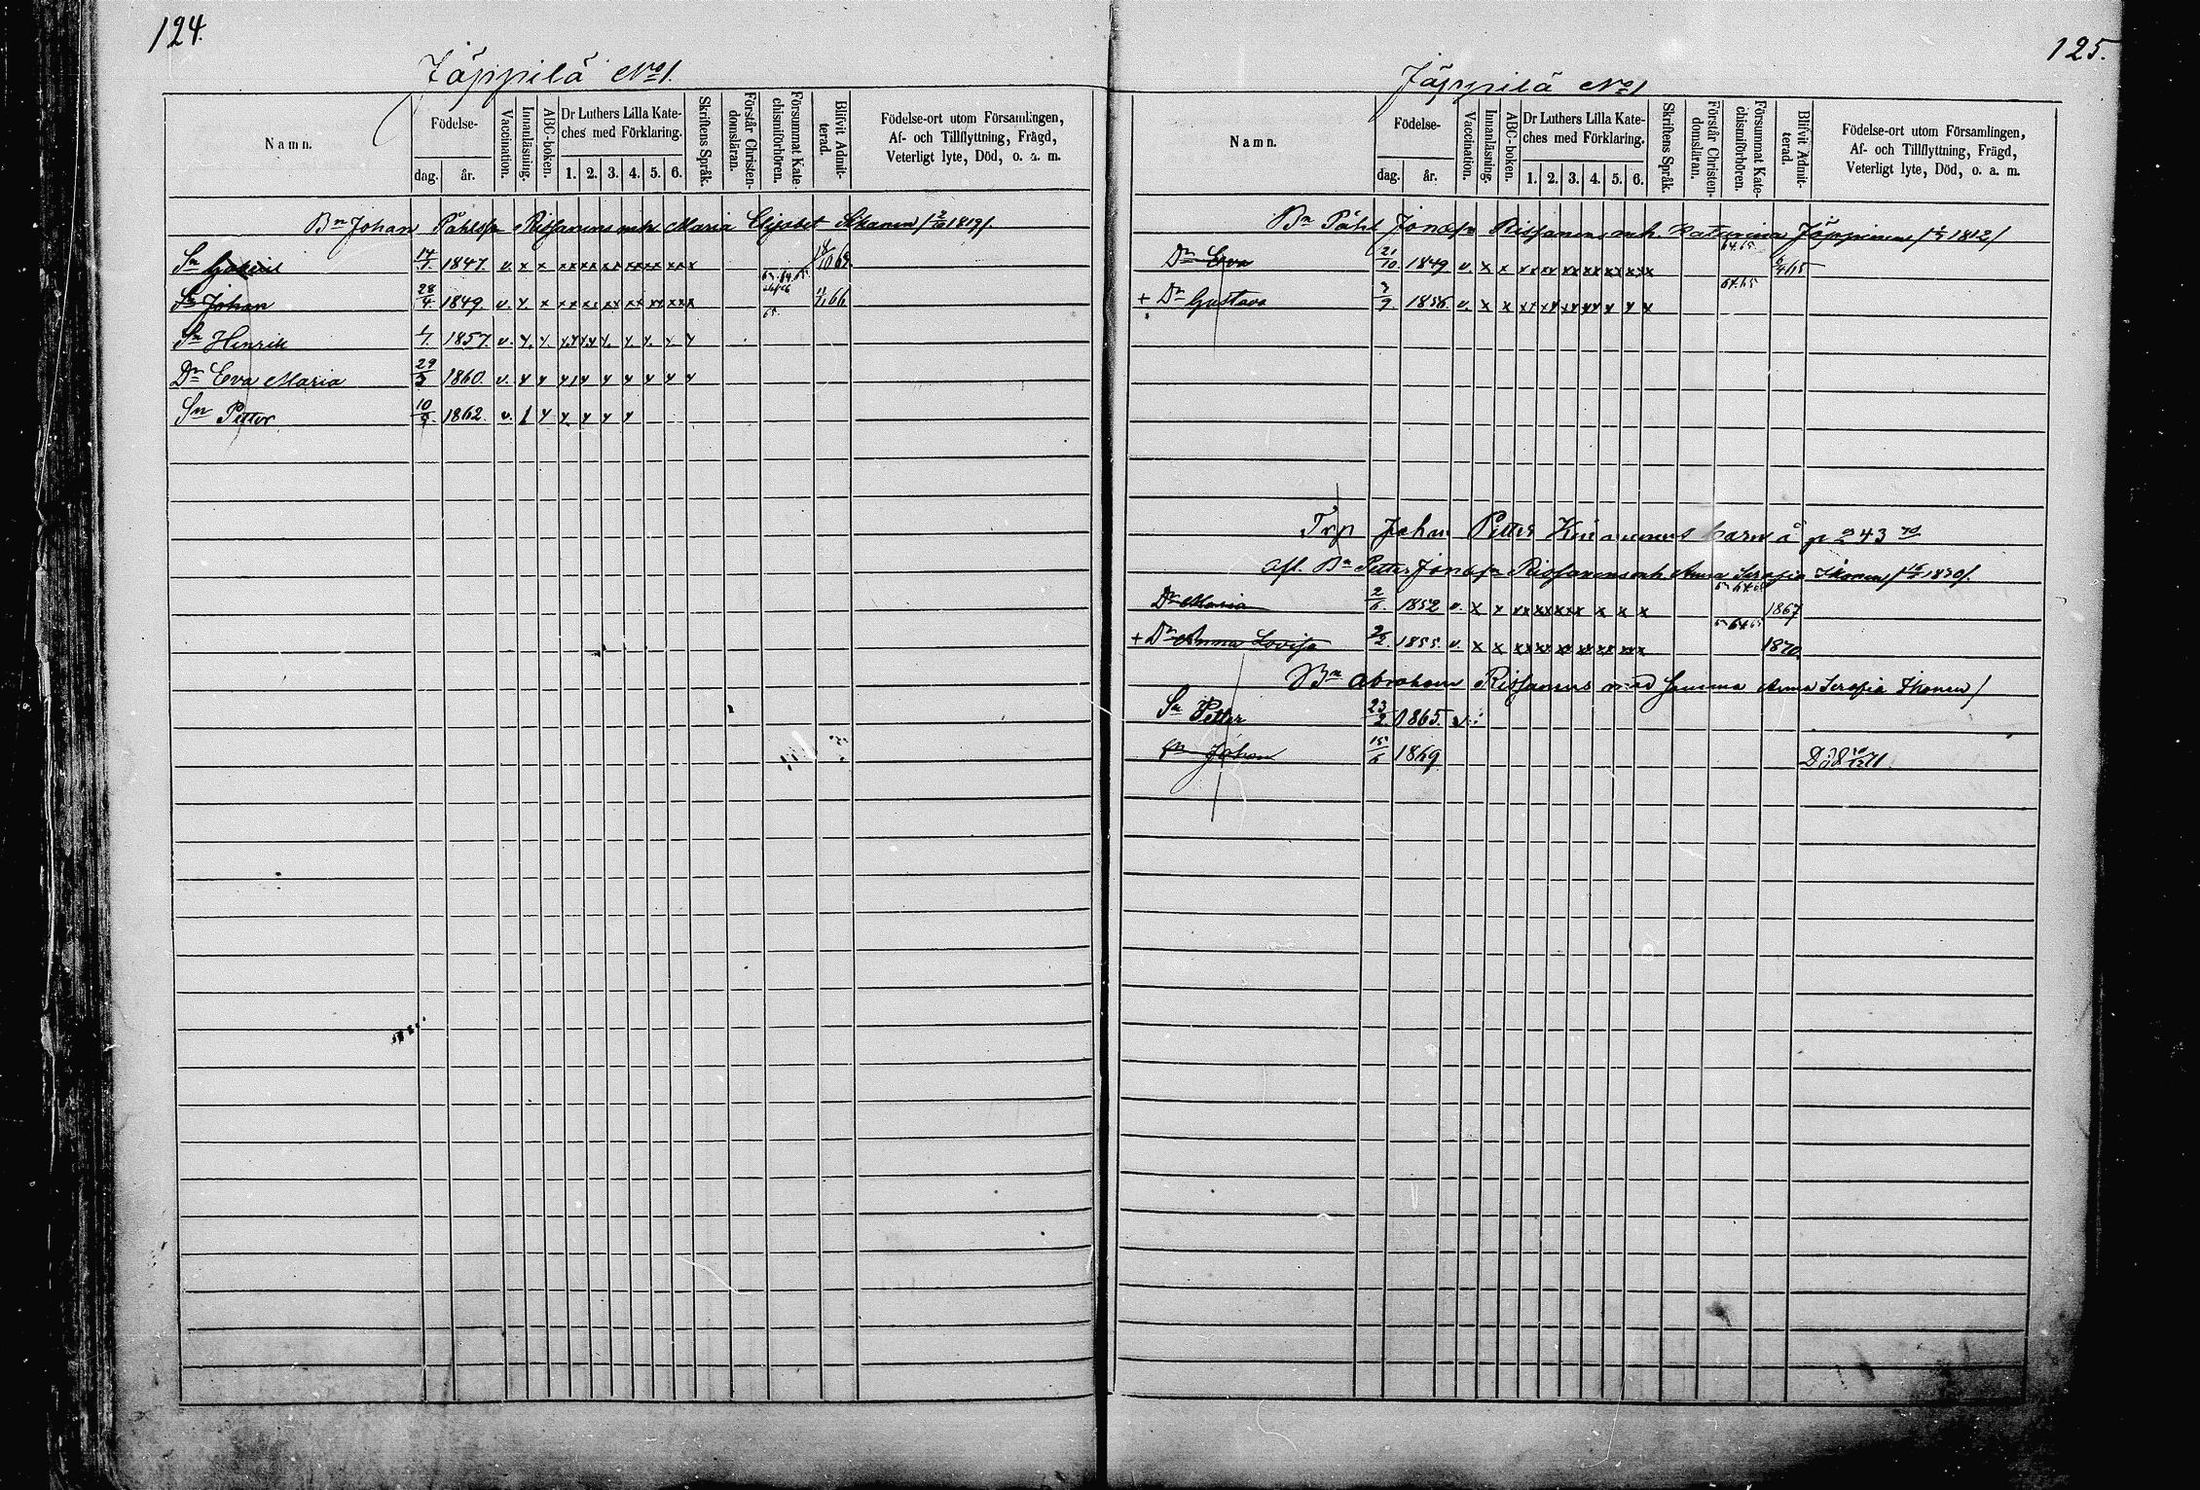 124.
Jäppilä No 1.
Namn.
Födelse-
dag.
år.
Vaccination.
Innanläsning.
ABC-boken.
Dr Luthers Lilla Kate-
ches med Förklaring.
1. 2. 3. 4. 5. 6.
Skriftens Språk.
Förstår Christen-
domsläran.
Försummat Kate-
chismiförhören.
Blifvit Admit-
terad.
Födelse-ort utom Församlingen,
Af- och Tillflyttning, Frägd,
Veterligt lyte, Död, o. a. m.
Bn Johan Påhlss Rissanens och Maria Elisabet 1819/.
Sn Gabriel 1847. v. x x xx xx xx xx xx xx x
Sn Johan 28/4. 1849. v. x x xx xx xx xx xx xx x 66
Sn Hinrik 1857. v.
Dr Eva Maria 1860. v.
Sn Petter 1862. v.
125.
Jäppilä No 1
Namn.
Födelse-
dag.
år.
Vaccination.
Innanläsning.
ABC-boken.
Dr Luthers Lilla Kate-
ches med Förklaring.
1. 2. 3. 4. 5. 6.
Skriftens Språk.
Förstår Christen-
domsläran.
Försummat Kate-
chismiförhören.
Blifvit Admit-
terad.
Födelse-ort utom Församlingen,
Af- och Tillflyttning, Frägd,
Veterligt lyte, Död, o. a. m.
Bn Påhl Jonass Rissanens och Katarina Jäppinens 1812/
64.65
Dr Eva 21/10. 1849 v. x x xx xx xx xx xx xx x
64.65
+ Dr Gustava 1856. v. x x xx xx xx xx x x x
Trp Johan Petter barn å p 243
Afl. Bn Petter Jonass Rissanens och Anna Serafia Ikonen 1830/.
Dr Maria 1852 v. x x xx xx xx x x x x 1867
64.65
+ Dr Anna Lovisa 1855. v. x x xx xx xx xx xx xx x 1870
Bn Abraham Rissanens med samma Anna Serafia Ikonen/
Sn Petter 23/2. 1865. v.
Sn Johan 1869 Död 71.